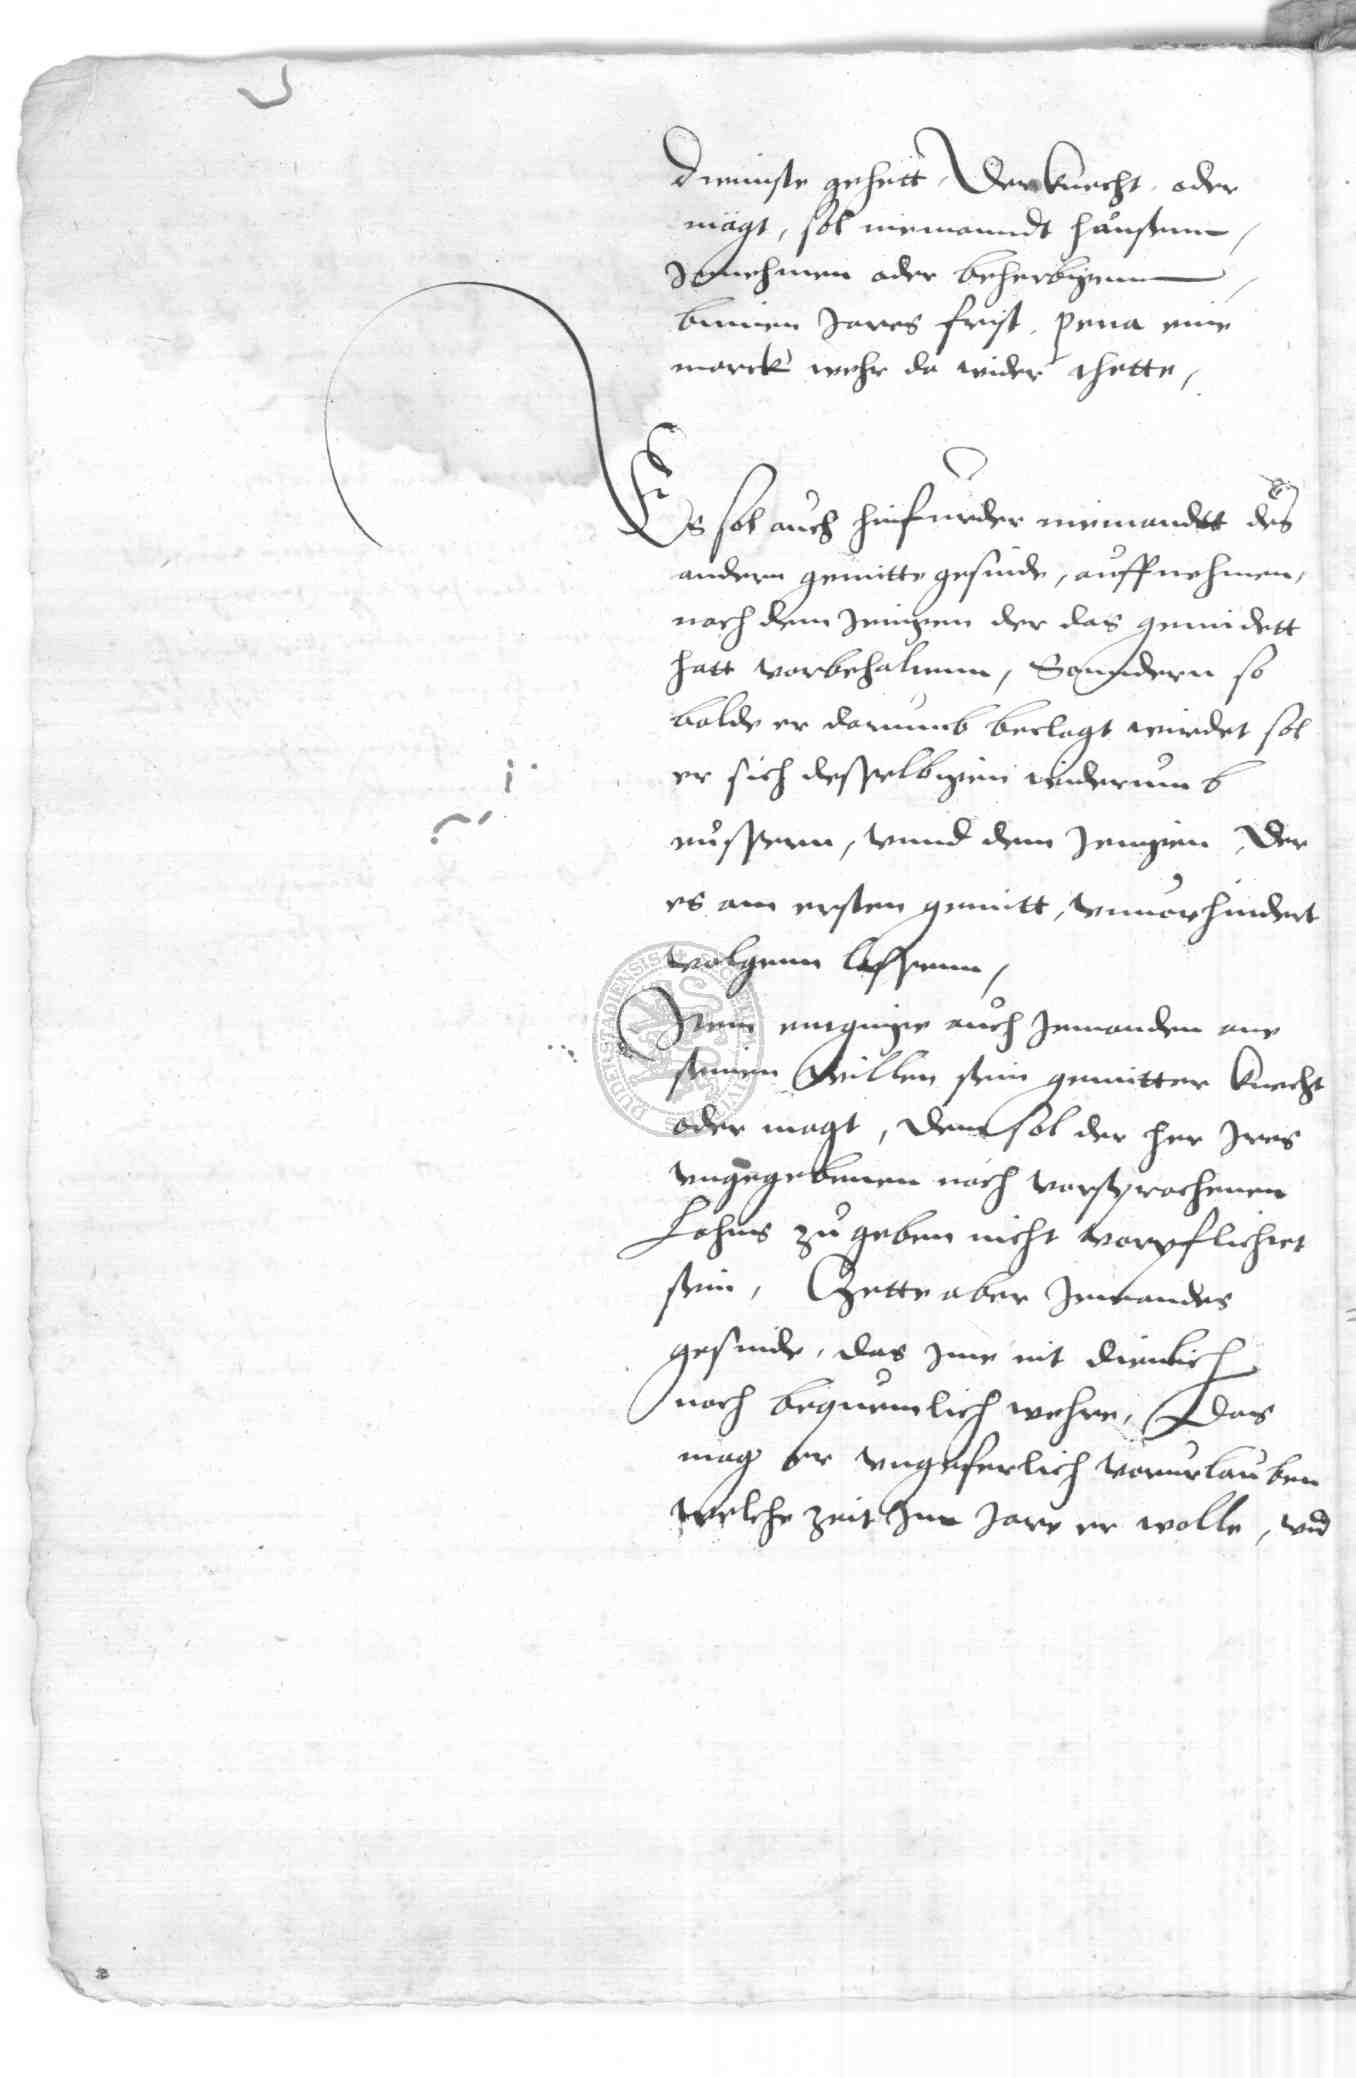 diennste gehett, Der knecht, oder
magt, sol niemanndt haussenn,
Innehmen oder beherbigenn
binnen Jares frist, pena eine
marck wehr da wider thette,
Es sol auch hinfurder niemandtt des
andern gemitte gesinde, auffnehmen,
noch dem Jenigen der das gemidett
hatt vorbehaltenn, Sonndern so
balde er darumb beclagt wirdet sol
er sich desselbigenn widerumb
eussern, vnnd dem Jenigen, Der
es am ersten gemitt, vnuorhindert
volgenn lassenn,
Item entginge auch Jemanden ane
seinen willen sein gemitter knecht
oder magt, dem sol der her Jres
vngegebenen noch vorsprochenen
Lohns zu geben nicht vorpflichtet
sein, Hette aber Jemandes
gesinde, das Jme nit dienlich
noch bequemlich wehre, Das
mag er vngeferlich vorurlauben
welche zeit Jm Jare er wolle, vnd